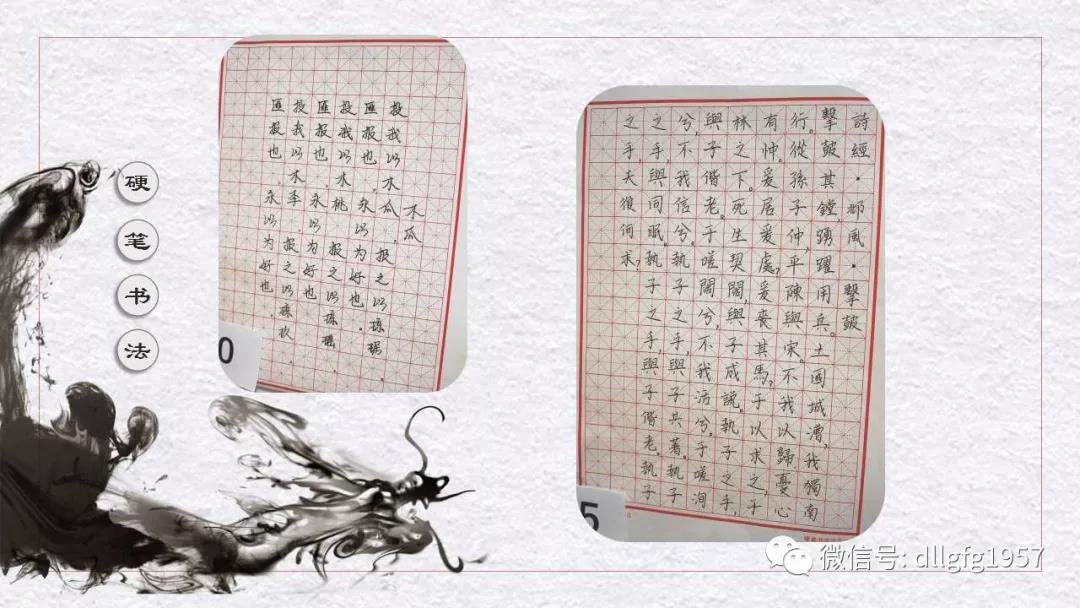 硬笔书法
木瓜
投我以木瓜,报之以琼琚
匪报也,永以为好也。
投我以木桃,报之以琼瑶,
匪报也,永以为好也
投我以木李,报之以琼玖,
匪报也,永以为好也.
0
詩經·邶風·擊鼓
擊鼓其鏜,踴躍用兵。土國城漕,我獨南
行。從孫子仲,平陳與宋。不我以歸,憂心
有忡。爰居爰處?爰喪其馬?于以求之,于
林之下。死生契闊,與子成說。執子之手,
與子偕老。于嗟闊兮,不我活兮,于嗟洵
兮,不我信兮。執子之手,與子共著。執子
之手,與同眠。執子之手,與子偕老。執子
之手,夫復何求?
5
微信号: dllgfg1957